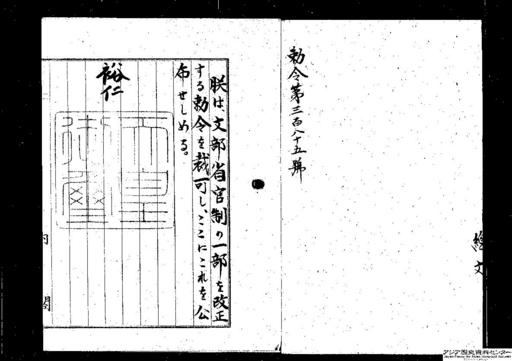 勅令第三百八十五號
朕は、文部省官制の一部を改正
する勅令を裁可し、ここにこれを公
布せしめる。
裕仁
天皇
御璽
内閣
アジア歴史資料センター